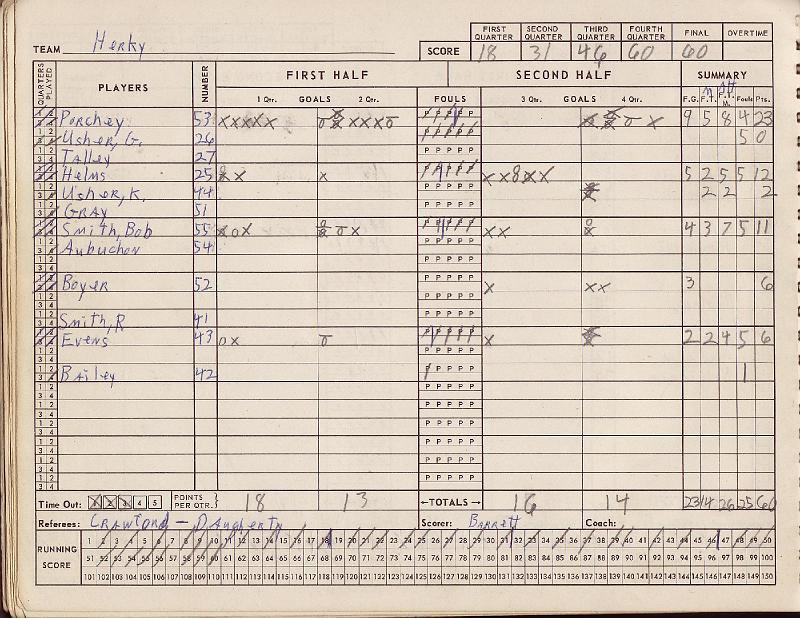 FIRST QUARTER SECOND QUARTER THIRD QUARTER FOURTH QUARTER FINAL OVERTIME
TEAM Herky SCORE 18 31 46 60 60
QUARTERS PLAYED PLAYERS NUMBER FIRST HALF SECOND HALF SUMMARY
1 Qtr. GOALS 2 Qtr. FOULS 3 Qtr. GOALS 4 Qtr. F.G. F.T. F.T. M. Fouls Pts.
Porchey 53 P P P P P 9 5 8 4 23
Usher, G. 26 P P P P P 5 0
Talley 27
Helms 25 P P P P P 5 2 5 5 12
Usher, K. 44 P P P P P 2 2 2
GRAY 51
Smith, Bob 55 P P P P P 4 3 7 5 11
Aubuchon 54 P P P P P
Boyer 52 P P P P P 3 6
P P P P P
Smith, R 41
Evens 43 P P P P P 2 2 4 5 6
P P P P P
Bailey 42 P P P P P 1
P P P P P
P P P P P
P P P P P
P P P P P
P P P P P
P P P P P
Time Out: 1 2 3 4 5 POINTS PER QTR. 18 13 ←TOTALS→ 16 14 23 14 26 25 60
Referees: CRAWFORD - DAugherty Scorer: BARRETT Coach:
RUNNING SCORE
1 2 3 4 5 6 7 8 9 10 11 12 13 14 15 16 17 18 19 20 21 22 23 24 25 26 27 28 29 30 31 32 33 34 35 36 37 38 39 40 41 42 43 44 45 46 47 48 49 50
51 52 53 54 55 56 57 58 59 60 61 62 63 64 65 66 67 68 69 70 71 72 73 74 75 76 77 78 79 80 81 82 83 84 85 86 87 88 89 90 91 92 93 94 95 96 97 98 99 100
101 102 103 104 105 106 107 108 109 110 111 112 113 114 115 116 117 118 119 120 121 122 123 124 125 126 127 128 129 130 131 132 133 134 135 136 137 138 139 140 141 142 143 144 145 146 147 148 149 150